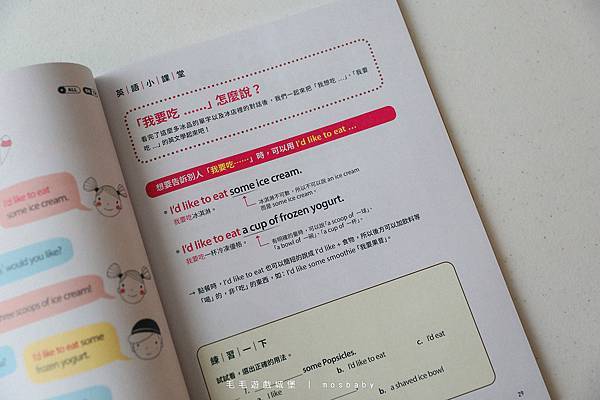 ALL
I'd like to eat
some ice cream.
would you like?
three scoops of ice cream!
I'd like to eat some
frozen yogurt.
英語小課堂
「我要吃 ……」怎麼說？
看完了這麼多冰品的單字以及冰店裡的對話後，我們一起來把「我想吃 …」、「我要
吃 …」的英文學起來吧！
想要告訴別人「我要吃……」時，可以用 I'd like to eat …
I'd like to eat some ice cream.
我要吃冰淇淋。
冰淇淋不可數，所以不可以說 an ice cream
而是 some ice cream。
I'd like to eat a cup of frozen yogurt.
我要吃一杯冷凍優格。
有明確的量時，可以說「a scoop of 一球」、
「a bowl of 一碗」、「a cup of 一杯」。
→ 點餐時，I'd like to eat 也可以簡短的說成 I'd like + 食物，所以後方可以加飲料等
「喝」的，非「吃」的東西，如：I'd like some smoothie「我要果昔」。
練習一下
試試看，選出正確的用法。
1. some Popsicles.
a. I like b. I'd like to eat c. I'd eat
b. a shaved ice bowl
29
毛毛遊戲城堡 | mosbaby